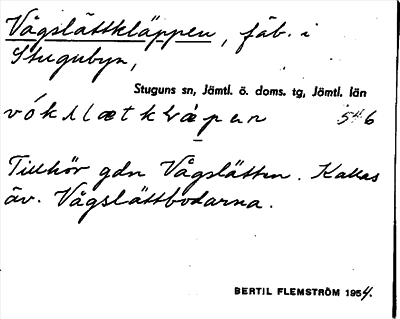 Vågslättkläppen, fäb. i
Stugubyn,
Stuguns sn, Jämtl. ö. doms. tg, Jämtl. län
546
Tillhör gdn Vågslätten. Kallas
äv. Vågslättbodarna.
BERTIL FLEMSTRÖM 1954.